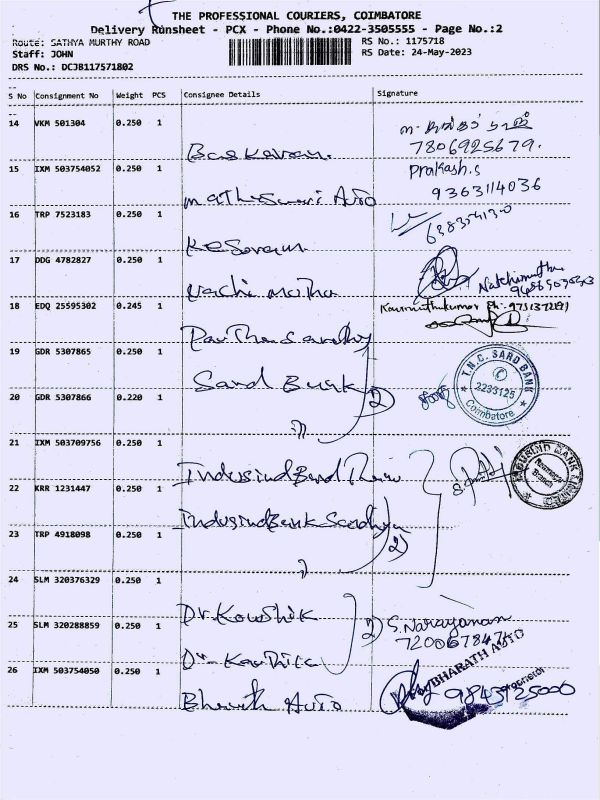 THE PROFESSIONAL COURIERS, COIMBATORE
Delivery Runsheet - PCX - Phone No.:0422-3505555 - Page No.:2
Route: SATHYA MURTHY ROAD
RS No.: 1175718
Staff: JOHN
RS Date: 24-May-2023
DRS No.: DCJB117571802
S No Consignment No Weight PCS Consignee Details Signature
14 VKM 501304 0.250 1
7806925679.
Baskaran.
15 IXM 503754052 0.250 1 Prakash.S
9363114036
Matheswari Auto
16 TRP 7523183 0.250 1
Kesavan
17 DDG 4782827 0.250 1
Nachimuthu
Natchimuthu
18 EDQ 25595302 0.245 1
Parthasarathy
19 GDR 5307865 0.250 1
Sard Bank
T.N.C. SARD BANK
2233125
Coimbatore
2)
20 GDR 5307866 0.220 1
21 IXM 503709756 0.250 1
IndusInd Bank
INDUSIND BANK LIMITED
22 KRR 1231447 0.250 1
IndusInd Bank Sandhya
2)
23 TRP 4918098 0.250 1
24 SLM 320376329 0.250 1
Dr. Koushik
2)
S. Narayanan
25 SLM 320288859 0.250 1
Dr. Kavitha
26 IXM 503754050 0.250 1
BHARATH AUTO
Proprietor
Bharath Auto